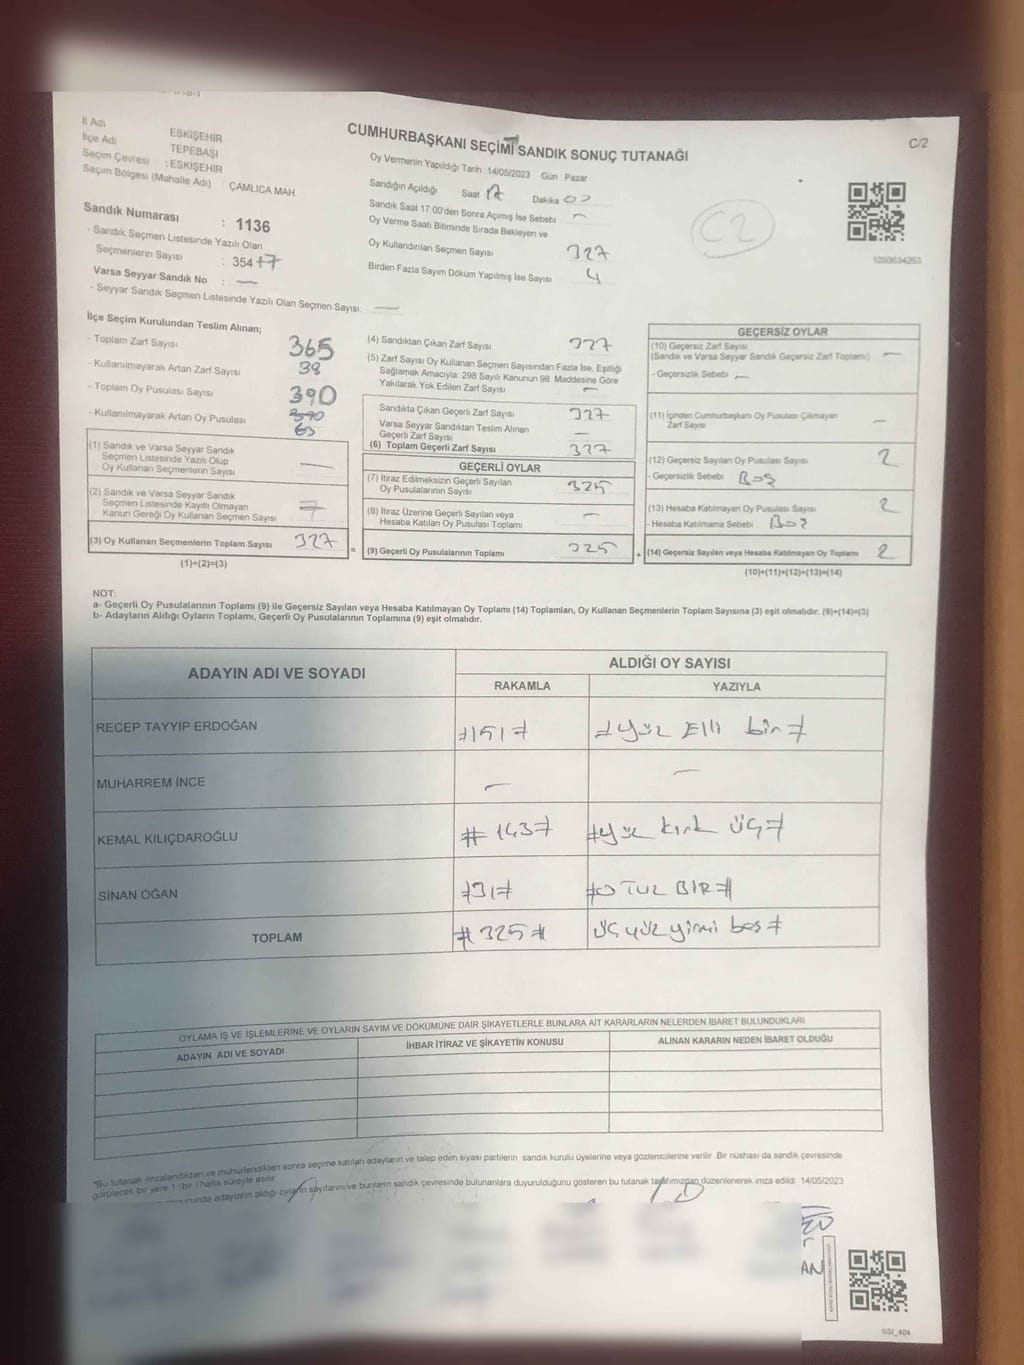 İl Adı
İlçe Adı
Seçim Çevresi
Seçim Bölgesi (Mahalle Adı)
ESKİŞEHİR
TEPEBAŞI
: ESKİŞEHİR
ÇAMLICA MAH.
CUMHURBAŞKANI SEÇİMİ SANDIK SONUÇ TUTANAĞI
C/2
Oy Vermenin Yapıldığı Tarih :14/05/2023 Gün Pazar
Sandığın Açıldığı Saat 17 Dakika 00
Sandık Saat 17:00'den Sonra Açımış İse Sebebi —
Oy Verme Saati Bitiminde Sırada Bekleyen ve
Oy Kullandırılan Seçmen Sayısı 327
Birden Fazla Sayım Döküm Yapılmış İse Sayısı 4
C2
1093634263
Sandık Numarası : 1136
- Sandık Seçmen Listesinde Yazılı Olan
Seçmenlerin Sayısı : 354+7
Varsa Seyyar Sandık No : —
- Seyyar Sandık Seçmen Listesinde Yazılı Olan Seçmen Sayısı: —
İlçe Seçim Kurulundan Teslim Alınan;
- Toplam Zarf Sayısı 365
- Kullanılmayarak Artan Zarf Sayısı 38
- Toplam Oy Pusulası Sayısı 390
- Kullanılmayarak Artan Oy Pusulası 390
63
(1) Sandık ve Varsa Seyyar Sandık
Seçmen Listesinde Yazılı Olup
Oy Kullanan Seçmenlerin Sayısı —
(2) Sandık ve Varsa Seyyar Sandık
Seçmen Listesinde Kayıtlı Olmayan
Kanun Gereği Oy Kullanan Seçmen Sayısı 7
(3) Oy Kullanan Seçmenlerin Toplam Sayısı 327
(1)+(2)=(3)
=
(4) Sandıktan Çıkan Zarf Sayısı 327
(5) Zarf Sayısı Oy Kullanan Seçmen Sayısından Fazla İse, Eşitliği
Sağlamak Amacıyla; 298 Sayılı Kanunun 98. Maddesine Göre
Yakılarak Yok Edilen Zarf Sayısı —
Sandıkta Çıkan Geçerli Zarf Sayısı 327
Varsa Seyyar Sandıktan Teslim Alınan
Geçerli Zarf Sayısı —
(6) Toplam Geçerli Zarf Sayısı 327
GEÇERLİ OYLAR
(7) İtiraz Edilmeksizin Geçerli Sayılan
Oy Pusulalarının Sayısı 325
(8) İtiraz Üzerine Geçerli Sayılan veya
Hesaba Katılan Oy Pusulası Toplamı —
(9) Geçerli Oy Pusulalarının Toplamı 325
+
GEÇERSİZ OYLAR
(10) Geçersiz Zarf Sayısı
(Sandık ve Varsa Seyyar Sandık Geçersiz Zarf Toplamı) —
- Geçersizlik Sebebi —
(11) İçinden Cumhurbaşkanı Oy Pusulası Çıkmayan
Zarf Sayısı —
(12) Geçersiz Sayılan Oy Pusulası Sayısı 2
- Geçersizlik Sebebi Boş
(13) Hesaba Katılmayan Oy Pusulası Sayısı 2
- Hesaba Katılmama Sebebi Boş
(14) Geçersiz Sayılan veya Hesaba Katılmayan Oy Toplamı 2
(10)+(11)+(12)+(13)=(14)
NOT:
a- Geçerli Oy Pusulalarının Toplamı (9) ile Geçersiz Sayılan veya Hesaba Katılmayan Oy Toplamı (14) Toplamları, Oy Kullanan Seçmenlerin Toplam Sayısına (3) eşit olmalıdır. (9)+(14)=(3)
b- Adayların Aldığı Oyların Toplamı, Geçerli Oy Pusulalarının Toplamına (9) eşit olmalıdır.
ADAYIN ADI VE SOYADI
ALDIĞI OY SAYISI
RAKAMLA YAZIYLA
RECEP TAYYIP ERDOĞAN #151# #yüz Elli bir#
MUHARREM İNCE — —
KEMAL KILIÇDAROĞLU #143# #yüz kırk üç#
SİNAN OĞAN #31# #OTUZ BİR#
TOPLAM #325# üç yüz yirmi beş#
OYLAMA İŞ VE İŞLEMLERİNE VE OYLARIN SAYIM VE DÖKÜMÜNE DAİR ŞİKAYETLERLE BUNLARA AİT KARARLARIN NELERDEN İBARET BULUNDUKLARI
ADAYIN ADI VE SOYADI İHBAR İTİRAZ VE ŞİKAYETİN KONUSU ALINAN KARARIN NEDEN İBARET OLDUĞU
"Bu tutanak imzalandıktan ve mühürlendikten sonra seçime katılan adayların ve talep eden siyasi partilerin sandık kurulu üyelerine veya gözlemcilerine verilir. Bir nüshası da sandık çevresinde
görülecek bir yere 1 (bir ) hafta süreyle asılır.
adayların aldığı oyların sayılarını ve bunların sandık çevresinde bulunanlara duyurulduğunu gösteren bu tutanak tarafımızdan düzenlenerek imza edildi. 14/05/2023
AN